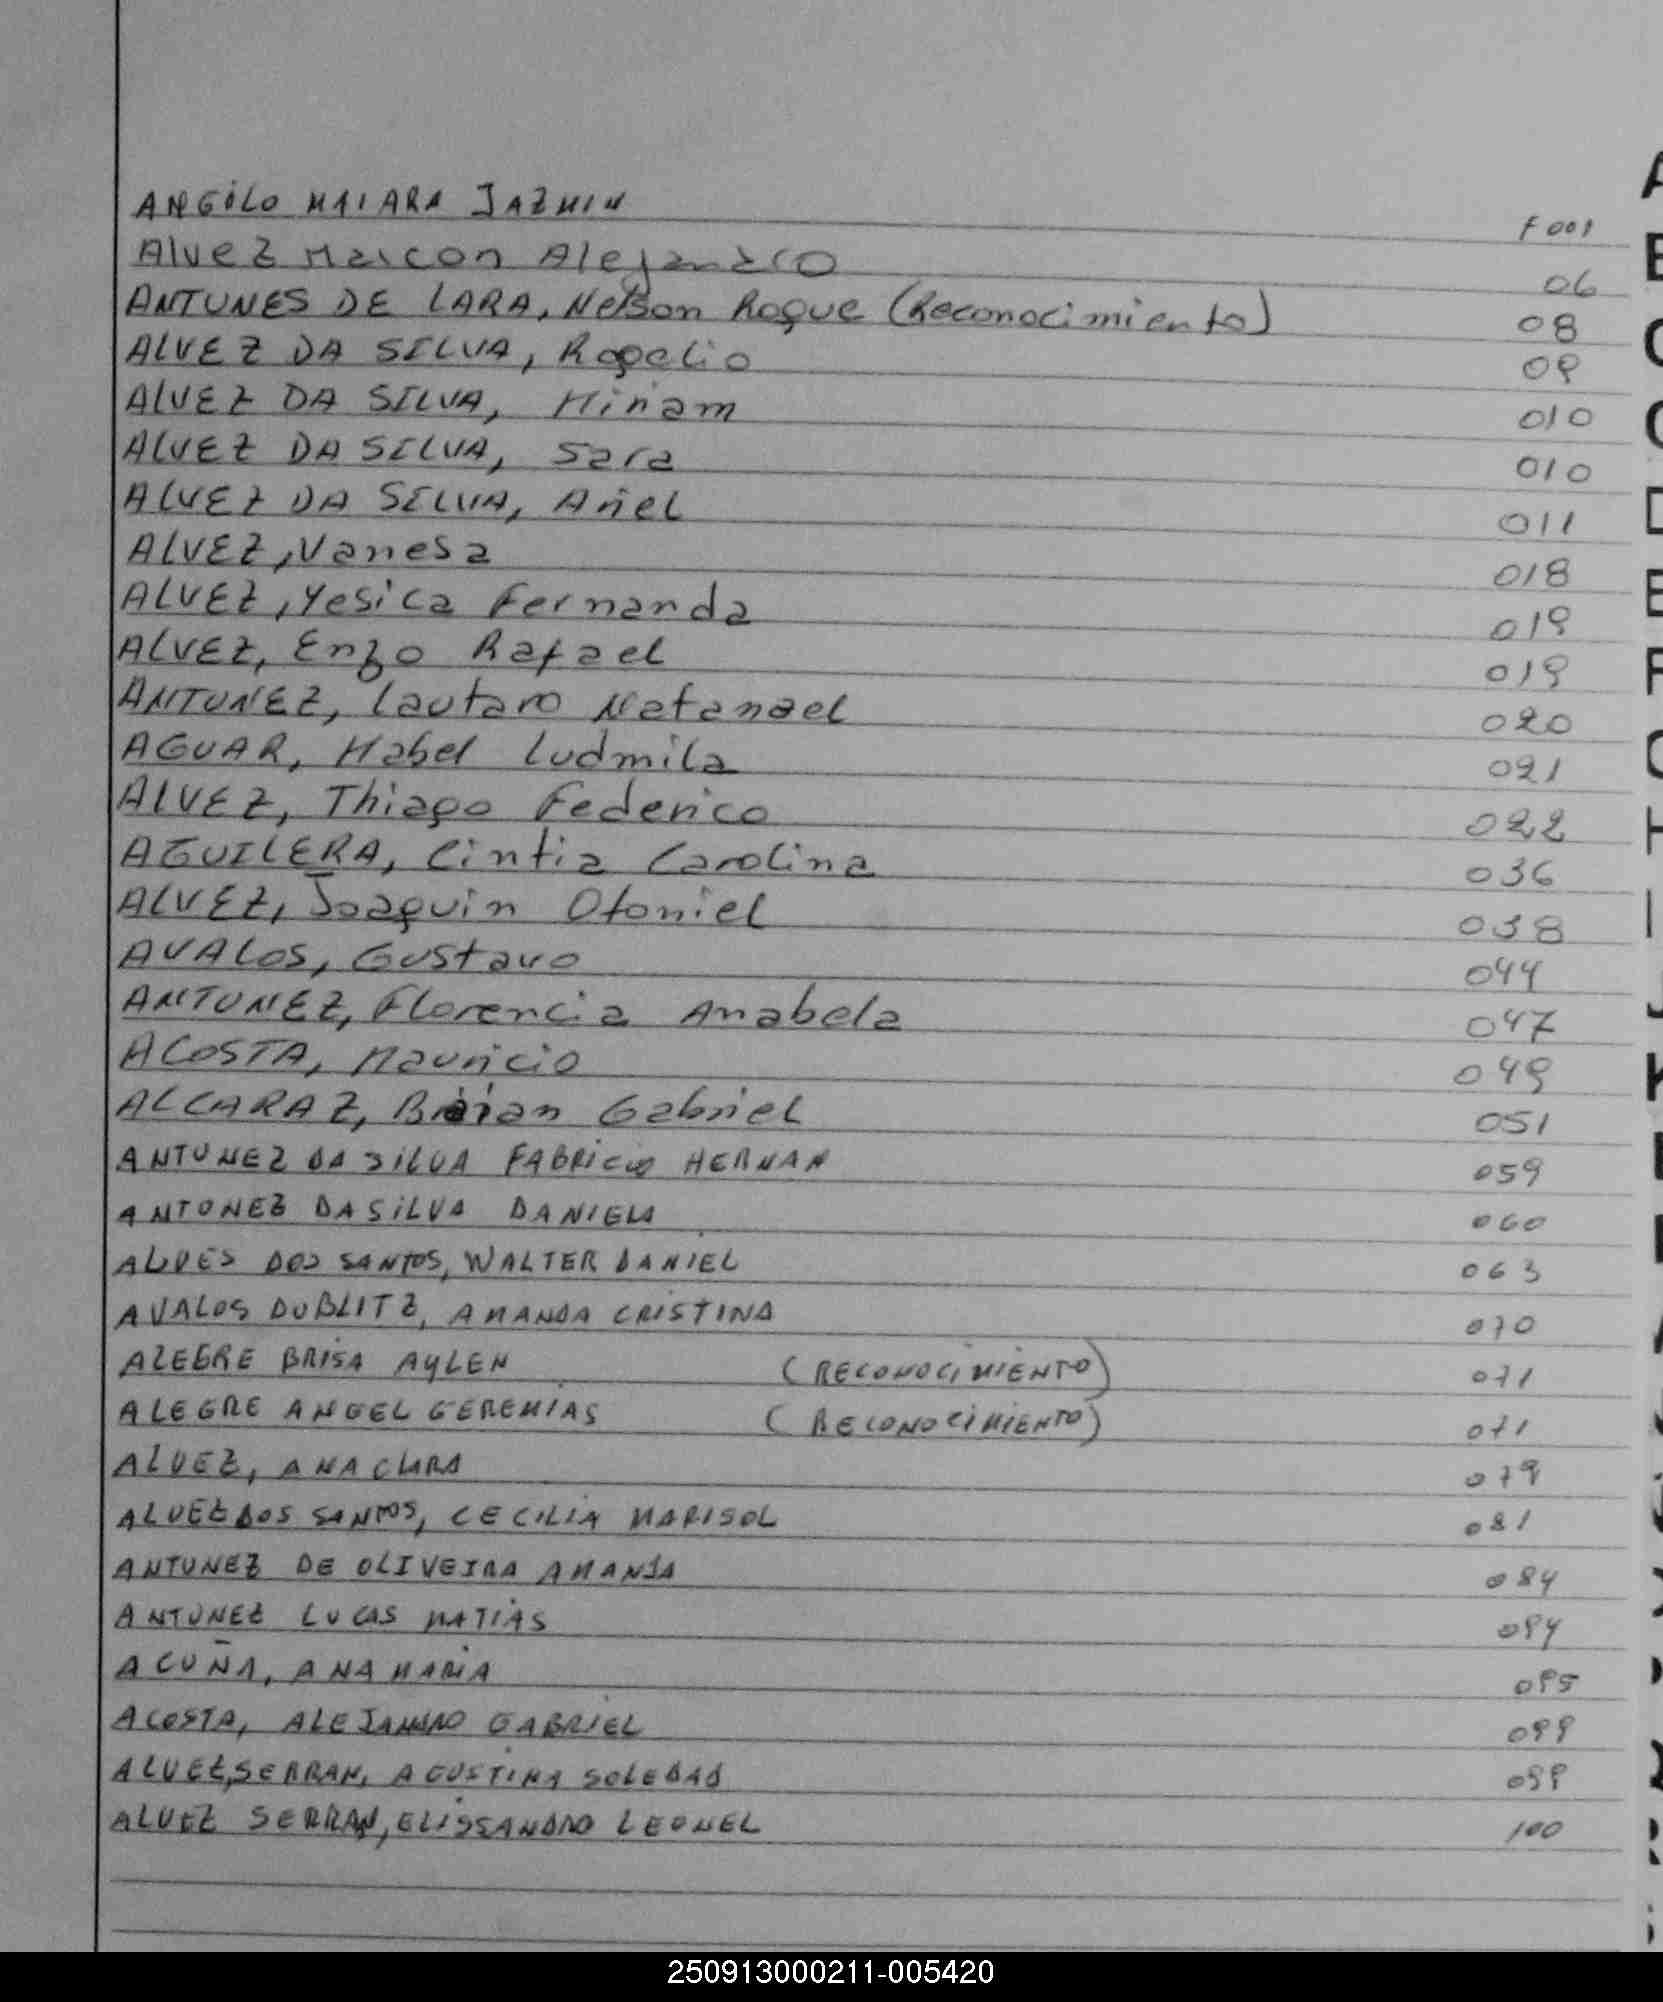 ANGELO MAIARA JAZMIN F 001
Alvez Maicon Alejandro 06
ANTUNES DE LARA, Nelson Roque (Reconocimiento) 08
ALVEZ DA SILVA, Rogelio 09
ALVEZ DA SILVA, Miriam 010
ALVEZ DA SILVA, Sara 010
ALVEZ DA SILVA, Ariel 011
ALVEZ, Vanesa 018
ALVEZ, Yesica Fernanda 019
ALVEZ, Enzo Rafael 019
ANTUNEZ, Lautaro Natanael 020
AGUAR, Mabel Ludmila 021
ALVEZ, Thiago Federico 022
AGUILERA, Cintia Carolina 036
ALVEZ, Joaquin Otoniel 038
AVALOS, Gustavo 044
ANTUNEZ, Florencia Anabela 047
ACOSTA, Mauricio 049
ALCARAZ, Brian Gabriel 051
ANTUNEZ DA SILVA FABRICIO HERNAN 059
ANTONEZ DA SILVA DANIELA 060
ALVES DOS SANTOS, WALTER DANIEL 063
AVALOS DUBLITZ, AMANDA CRISTINA 070
ALEGRE BRISA AYLEN (RECONOCIMIENTO) 071
ALEGRE ANGEL GEREMIAS (RECONOCIMIENTO) 071
ALVEZ, ANA CLARA 079
ALVEZ DOS SANTOS, CECILIA MARISOL 081
ANTUNEZ DE OLIVEIRA AMANDA 084
ANTUNEZ LUCAS MATIAS
ACUÑA, ANA MARIA
ACOSTA, ALEJANDRO GABRIEL 099
ALVEZ, SERRAN, AGUSTINA SOLEDAD 099
ALVEZ SERRAN, ELISSANDRO LEONEL 100
250913000211-005420